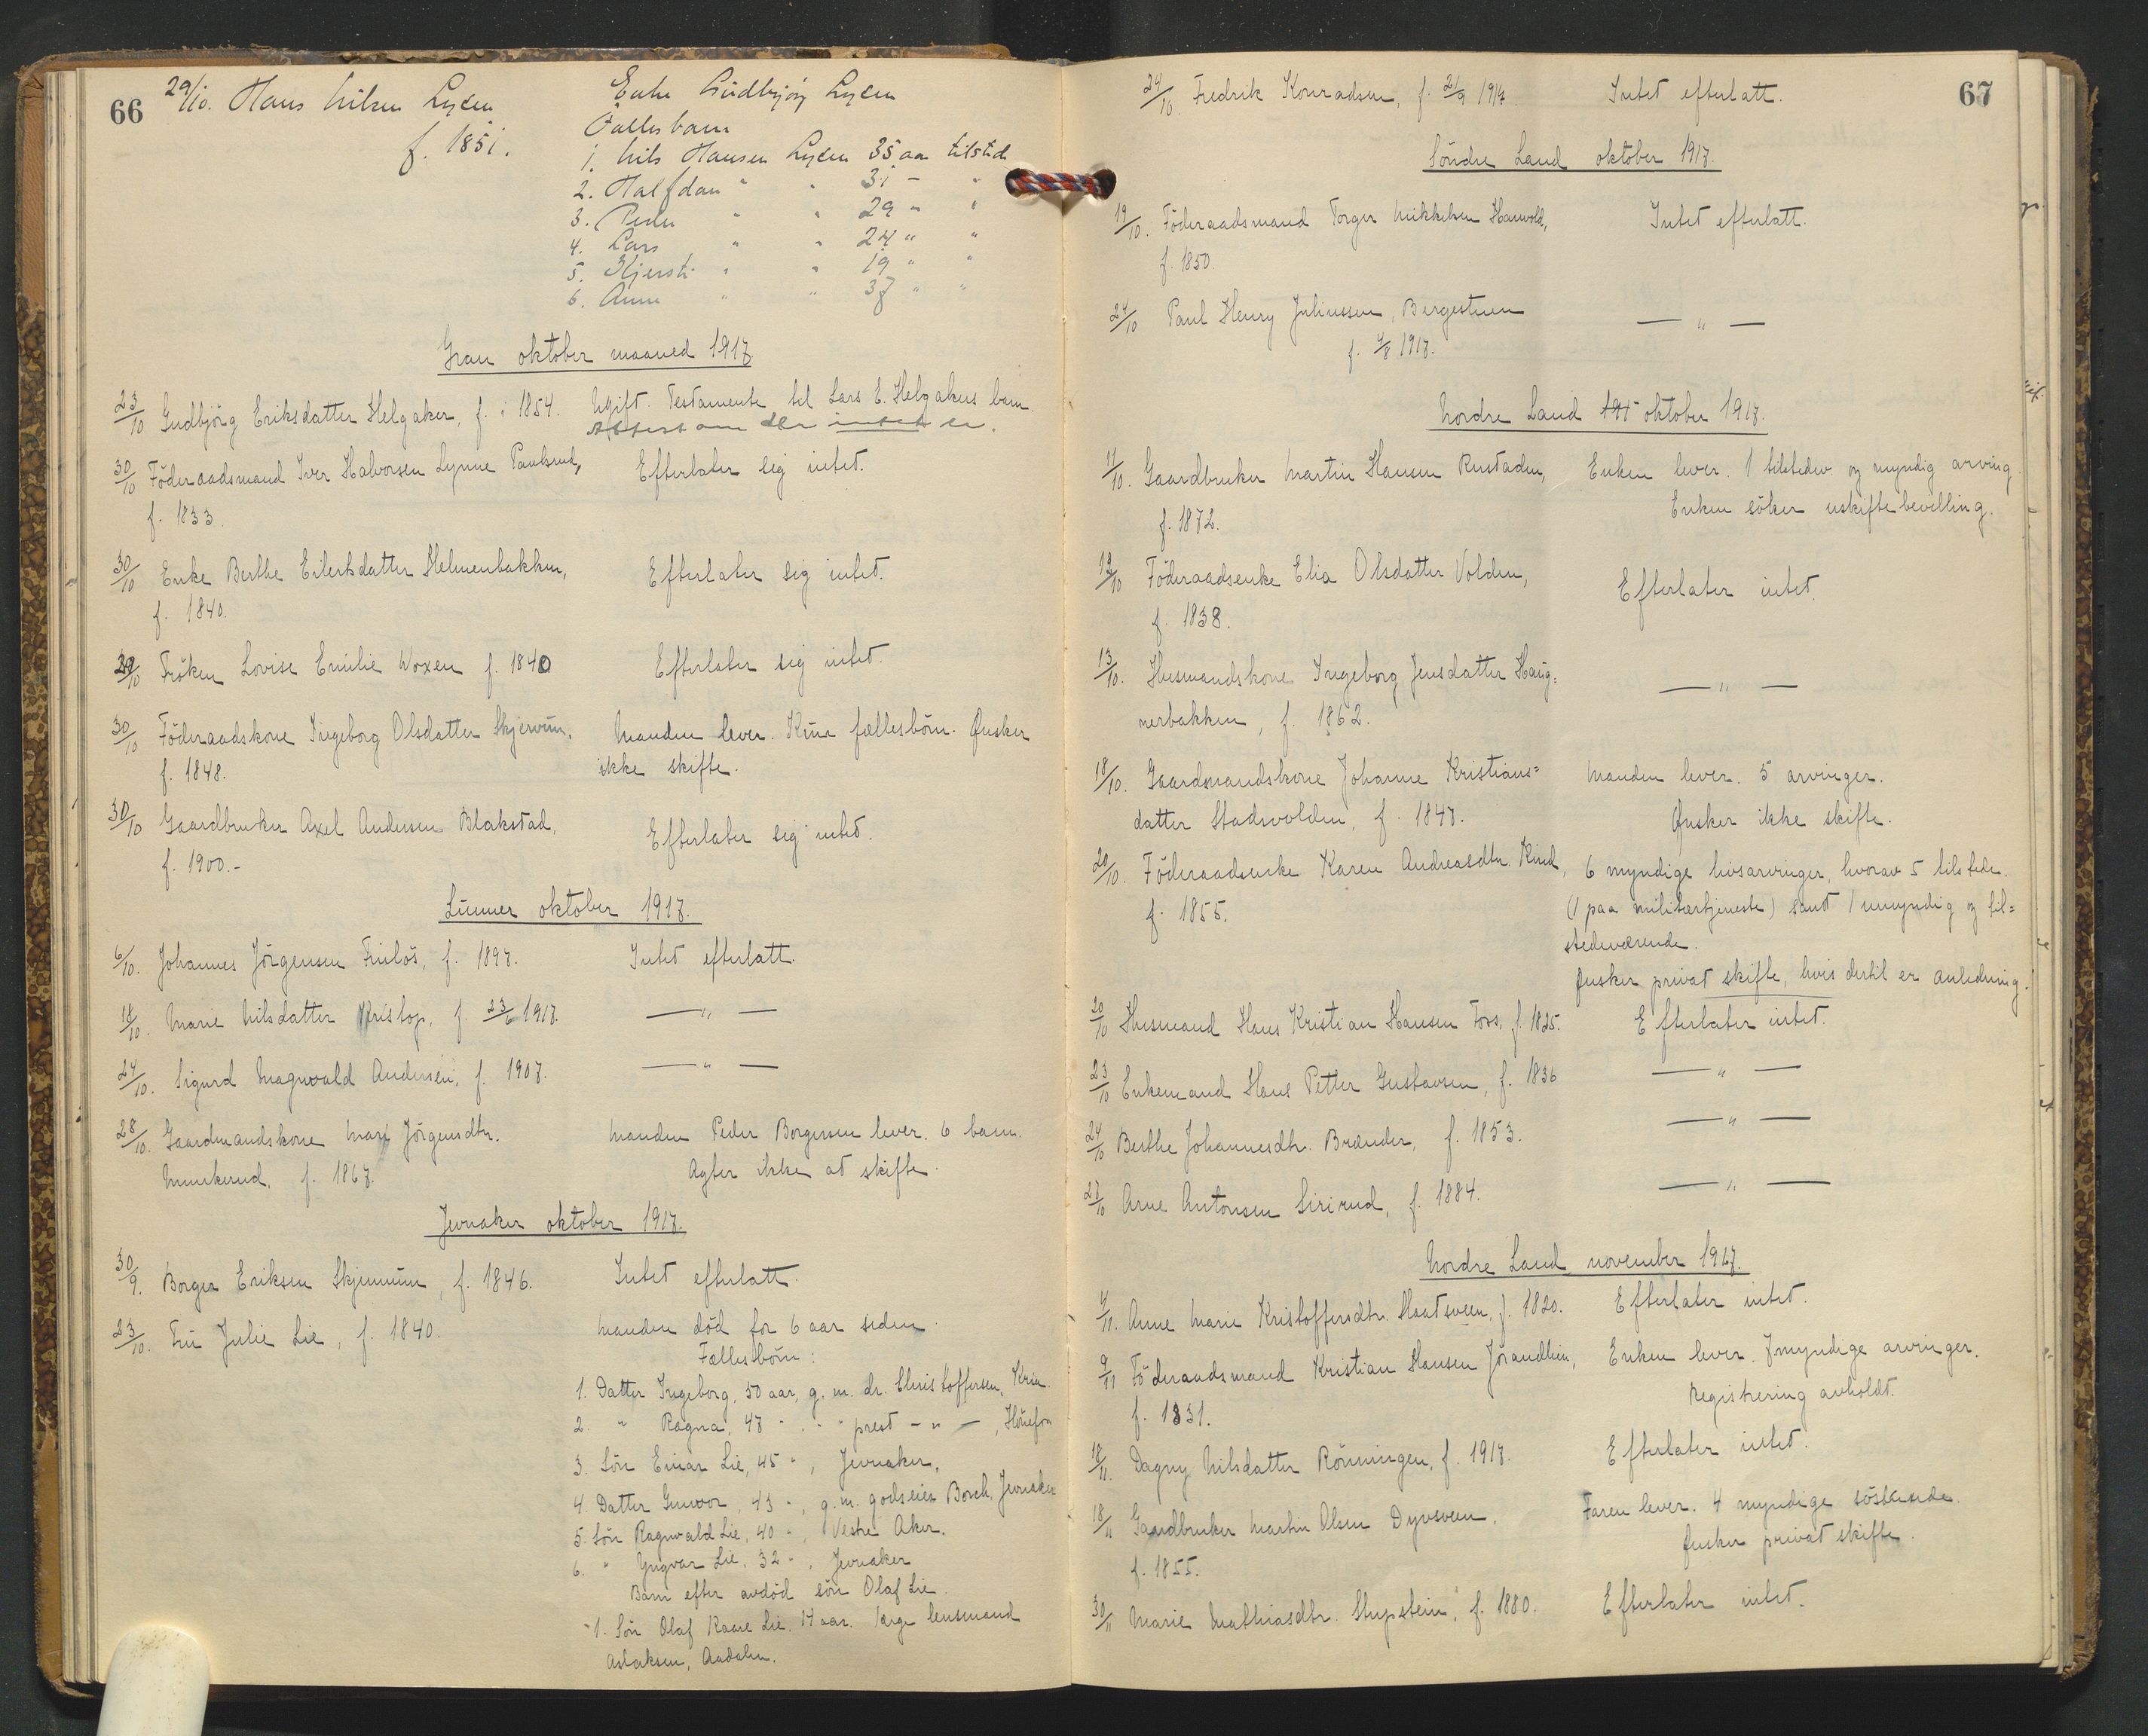 66
29/10. Hans Nilsen Lysen
f. 1851.
Enke Gudbjør Lysen
Fælles barn
1. Nils Hansen Lysen 35 aar tilsted
2. Halfdan " " 31 - "
3. Peder " " 29 " "
4. Lars " " 24 " "
5. Kjersti " " 19 " "
6. Anne " " 37 " "
Gran oktober maaned 1917.
23/10 Gudbjörg Eriksdatter Helgaker, f. i 1854. Ugift. Testamente til Lars E. Helgakers barn.
Attest om der intet er.
30/10 Föderaadsmand Iver Halvorsen Lynne Paulsrud, Efterlater sig intet.
f. 1833.
30/10 Enke Berthe Eilertsdatter Helmenbakken, Efterlater sig intet.
f. 1840.
29/10 Fröken Lovise Emilie Woxen f. 1840 Efterlater sig intet.
30/10 Föderaadskone Ingeborg Olsdatter Skjervum, Manden lever. Kun fællesbörn. Önsker
f. 1848. ikke skifte.
30/10 Gaardbruker Axel Andersen Blakstad, Efterlater sig intet.
f. 1900.-
Lunner oktober 1917.
6/10. Johannes Jörgensen Finlös, f. 1897. Intet efterlatt.
14/10. Marie Nilsdatter Kristop, f. 23/6 1917. — " —
24/10. Sigurd Magnvald Andersen, f. 1907. — " —
28/10. Gaardmandskone Mari Jörgensdtr. Manden Peder Borgersen lever. 6 barn.
Munkerud, f. 1867. Agter ikke at skifte.
Jevnaker oktober 1917.
30/9. Borger Eriksen Skjennum, f. 1846. Intet efterlatt.
23/10. Fru Julie Lie, f. 1840. Manden död for 6 aar siden.
Fællesbörn:
1. Datter Ingeborg, 50 aar, g. m. dr. Christoffersen, Kria
2. " Ragna, 48 " " " prest - " - , Hönefos
3. Sön Einar Lie, 45 " , Jevnaker.
4. Datter Gunvor, 43 " , g. m. godseier Borch, Jevnaker
5. Sön Ragnvald Lie, 40 " , Vestre Aker.
6. " Yngvar Lie, 32 " , Jevnaker
Barn efter avdöd sön Olaf Lie.
1. Sön Olaf Kaare Lie, 17 aar. Værge lensmand
Aslaksen, Aadalen.
67
24/10. Fredrik Konradsen, f. 21/9 1917. Intet efterlatt.
Söndre Land oktober 1917.
19/10. Föderaadsmand Torger Mikkelsen Hauvold, Intet efterlatt.
f. 1850.
24/10 Paul Henry Juliussen, Bergestuen — " —
f. 4/8 1917.
Nordre Land oktober 1917.
11/10. Gaardbruker Martin Hansen Rustaden, Enken lever. 1 tilstedev. og myndig arving.
f. 1872. Enken söker uskiftebevilling.
12/10 Föderaadsenke Elia Olsdatter Volden, Efterlater intet.
f. 1838.
13/10. Husmandskone Ingeborg Jensdatter Haug= — " —
nerbakken, f. 1862.
18/10. Gaardmandskone Johanne Kristians= Manden lever. 5 arvinger.
datter Stadsvolden, f. 1847. Önsker ikke skifte.
20/10. Föderaadsenke Karen Andreasdtr. Kind, 6 myndige livsarvinger, hvorav 5 tilstede.
f. 1855. (1 paa militærtjeneste) samt 1 umyndig og til=
stedeværende.
Önsker privat skifte, hvis dertil er anledning.
20/10 Husmand Hans Kristian Hansen Foss, f. 1825. Efterlater intet.
23/10 Enkemand Hans Petter Gustavsen, f. 1836 — " —
24/10 Berthe Johannesdtr. Brænder, f. 1853. — " —
27/10 Arne Antonsen Sirirud, f. 1884. — " —
Nordre Land november 1917.
4/11. Anne Marie Kristoffersdtr. Staatsveen, f. 1820. Efterlater intet.
9/11 Föderaadsmand Kristian Hansen Jörandlien, Enken lever. 7 myndige arvinger.
f. 1831. Registrering avholdt.
18/11. Dagny Nilsdatter Rönningen, f. 1917. Efterlater intet.
18/11 Gardbruker Martin Olsen Dyvsveen, Faren lever. 4 myndige söskende.
f. 1855. Önsker privat skifte.
30/11 Marie Mathiasdtr. Stupstein, f. 1880. Efterlater intet.